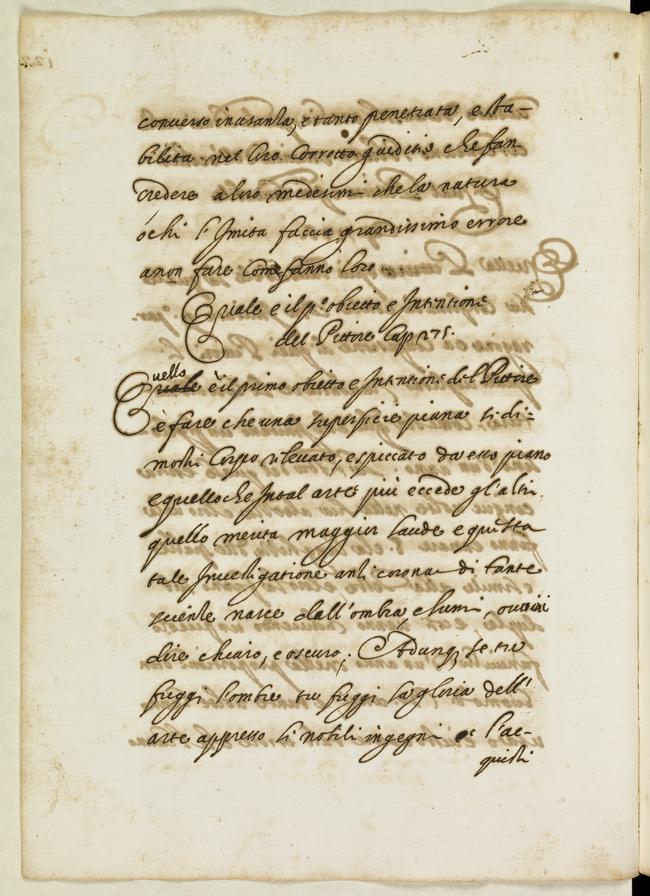 conuerso in usanza, e tanto penetrata, e sta-
bilita nel loro Corrotto giuditio che fan
credere a loro medesimi che la natura
ó chi l'Imita faccia grandissimo errore
a non fare come fanno loro
Quale e il p.º obietto e Intentione
del Pittore Cap 275.
uello
Quale è il primo obietto e Intentione del Pittore
è fare che una superficie piana si di=
mostri Corpo rileuato, e spiccato da esso piano
e quello che In tal arte più eccede gl'altri
quello merita maggior laude e questa
tale Inuestigatione anzi corona di tante
scienze nasce dall'ombra, e lumi, o uuoi
dire chiaro, e oscuro; Adunq; se tu
fuggi l'ombre tu fuggi la gloria dell'
arte appresso li nobili ingegni e l'ac-
quisti